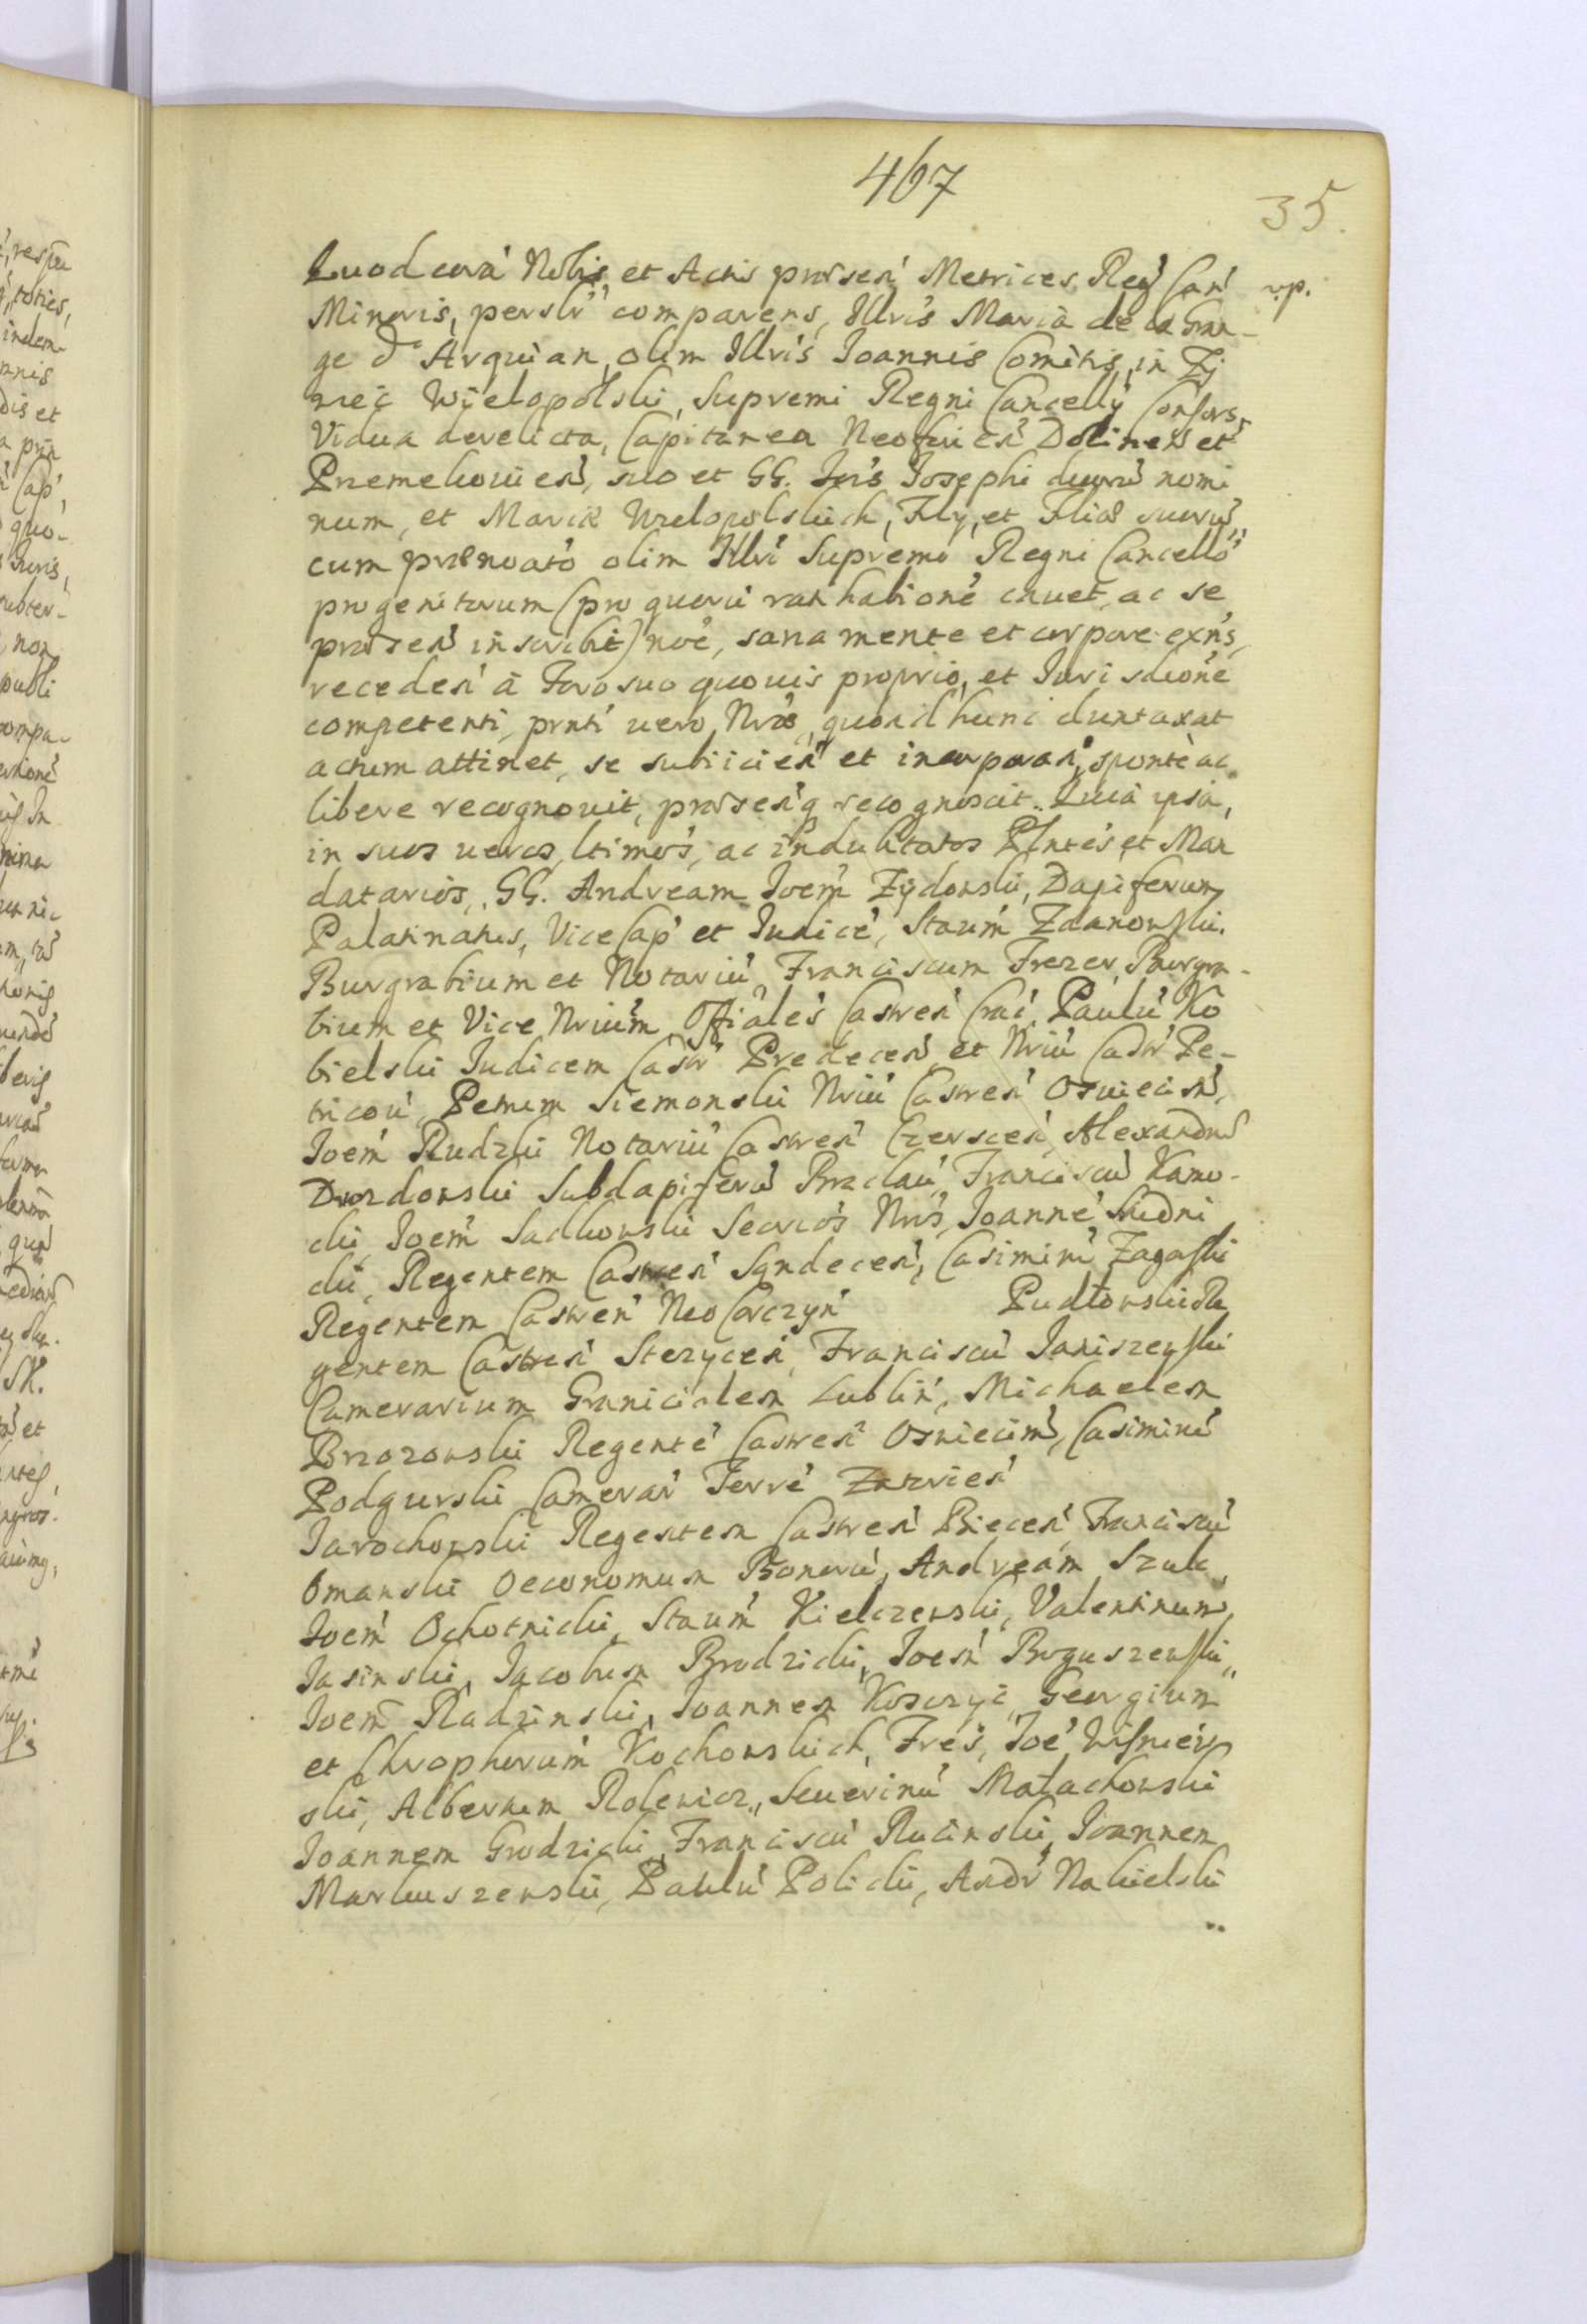 467
35.
Quod corá Nobis, et Actis praesen' Metrices Regn' Can' rp.
Minoris, persltr' comparens, Illris Maria de la Gran-
ge d' Arquian, olim Illris Joannis Comitis in Zy
wiec Wielopolski, Supremi Regni Cancellrÿ Consors,
Vidua derelicta, Capitanea Neoforien' Dolinen' et
Przemekouien', suo et GG. Jnis Josephi duorū nomi
num, et Mariæ Wielopolskich, Filÿ, et Filiæ suorū,
cum prænoato olim Illri Supremo Regni Cancello
progenitorum (pro quorū ratihabitioné cauet, ac se
præsen' inscribit) noé, sana mente et corpore exns,
receden' à Foro suo quouis proprio, et Jurisdioné
competenti, prnti uero Nros, quoad hunc duntaxat
actum attinet, se subiicien' et incorporan', sponte ac
libere recognouit, præsen'q recognoscit. Quia ipsa,
in suos ueros, ltimos, ac indubitatos Plntes et Man
datarios, GG. Andream Joem Zydowski, Dapiferum
Palatinatus, Vice Cap' et Judicé, Staum Zdanowski.
Burgrabium et Notariū, Franciscum Frezer, Burgra-
bium et Vice Nrium, Offiales Castren' Crac' Paulū Ko
bielski Judicem Castr' Predecen' et Nriū Castr' Pe-
tricou', Petrum Siemonski Nriū Castren' Osuiecin',
Joem Rudzki Notariū Castren' Czerscen', Alexandrū
Drozdowski Subdapiferū Braclau', Franciscū Kamo-
cki, Joem Sadkowski Secrios Nros, Joanné Sudni
cki, Regentem Castren' Sandecen', Casimirū Zagaski
Regentem Castren' Neo Corczyn' Pudłowski Re
gentem Castren' Stezycen', Franciscū Janiszewski
Camerarium Granicialem Lublin', Michaelem
Brzozowski Regenté Castren' Osuiecim', Casimirū
Podgurski Camerar' Terré Zatorien'
Jarochowski Regentem Castren' Biecen' Franciscū
Omanski Oeconomum Bonorū, Andream Szulc,
Joem Ochotnicki, Staum Kielczewski, Valentinum
Jasinski, Jacobum Brodzicki, Joem Boguszewski,
Joem Radzinski, Joannem Koszczyc, Georgium
et Chrophorum Kochowskich, Fres, Joe Wisniew
ski, Albertum Rolewicz, Seuerinū Małachowski
Joannem Grodzicki, Franciscū Rucinski, Joannem
Markuszewski, Paulū Policki, Andr' Nakielski